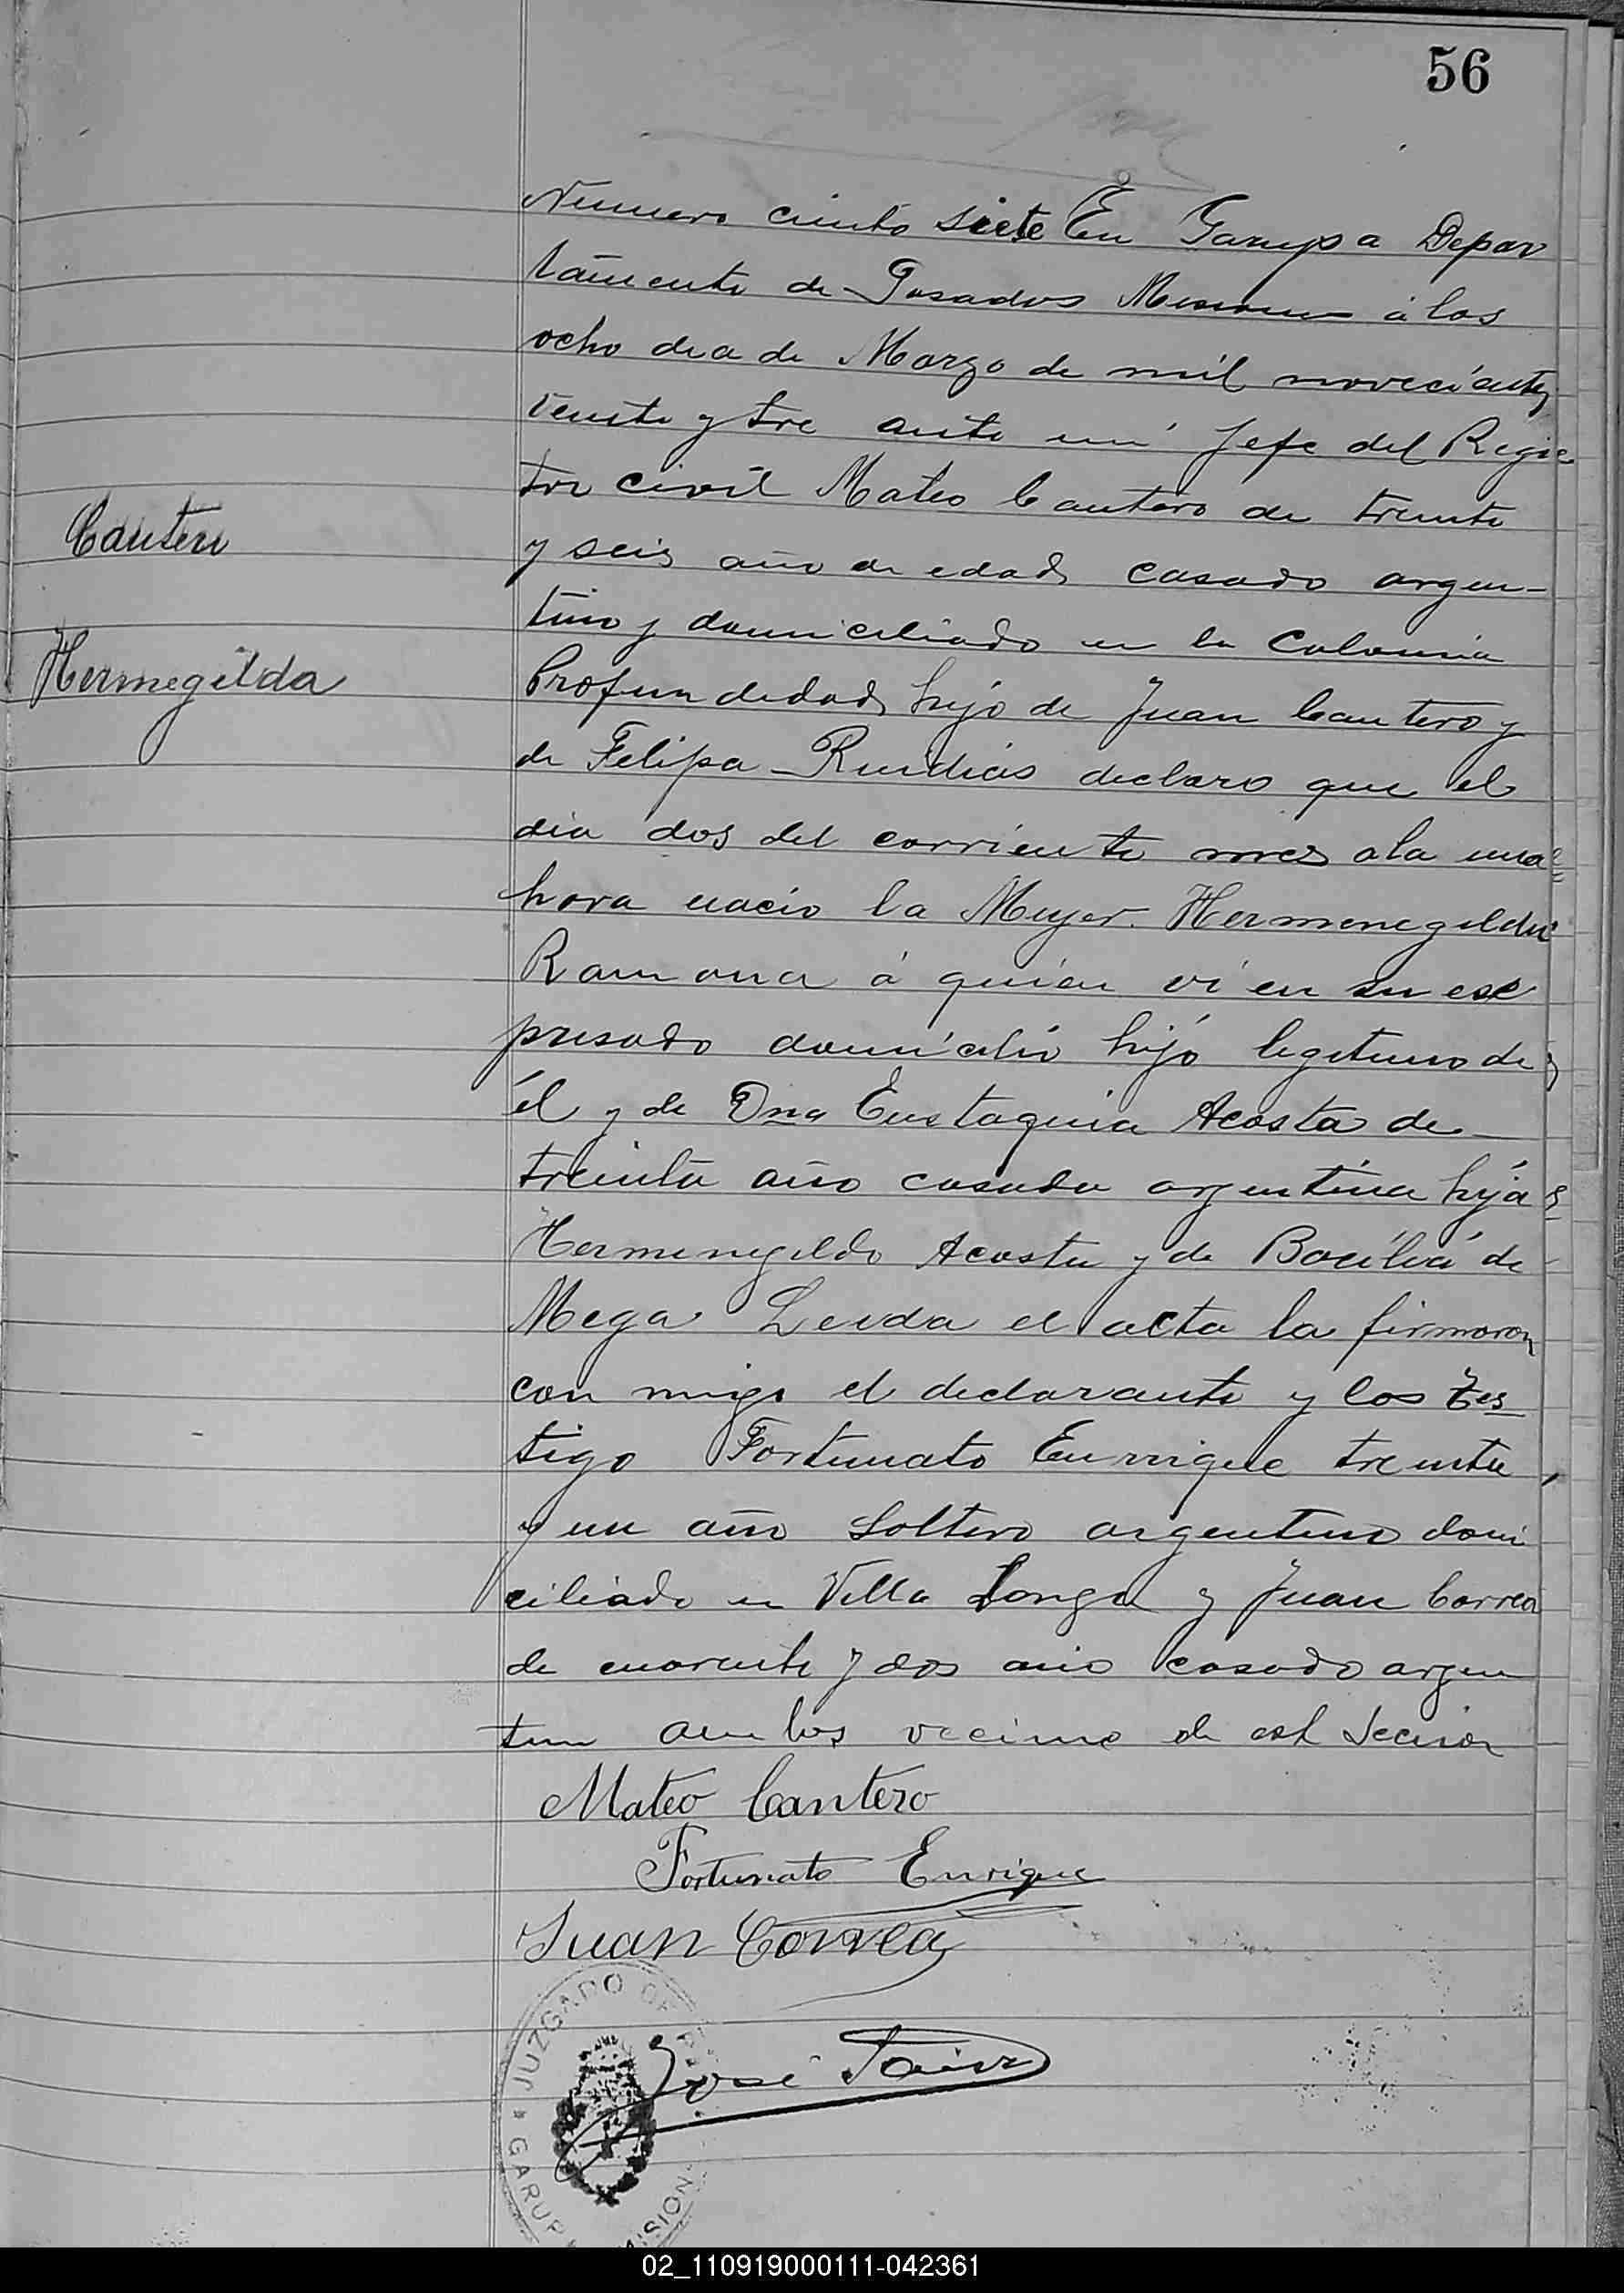 56
Numero ciento siete En Garupa Depar
tamento de Posadas Misiones á los
ocho dia de Marzo de mil novecientos
veinte y tre ante mi Jefe del Regis
tro civil Mateo Cantero de treinta
y seis año de edad casado argen-
tino y domiciliado en la Colonia
Cantero
Profundedad hijo de Juan Cantero y
Hermegilda
de Felipa Ruidias declaro que el
dia dos del corriente mes a la una
hora nacio la Mujer Hermenegilda
Ramona á quien vi en su es
presado domicilio hijo legitimo de
él y de Dna Eustaquia Acosta de
treinta año casada argentina hija
Hermenegildo Acosta y de de
Mega Leida el acta la firmaron
con migo el declarante y los tes-
tigo Fortunato Enrrique treinta
y un año soltero argentino domi
ciliado en Villa Longa y Juan Correa
de cuarenta y dos año casado argen
tino ambos vecino de est Seccion
Mateo Cantero
Fortunato Enrique
Juan Correa
José
JUZGADO DE
GARUP
MISION
02_110919000111-042361